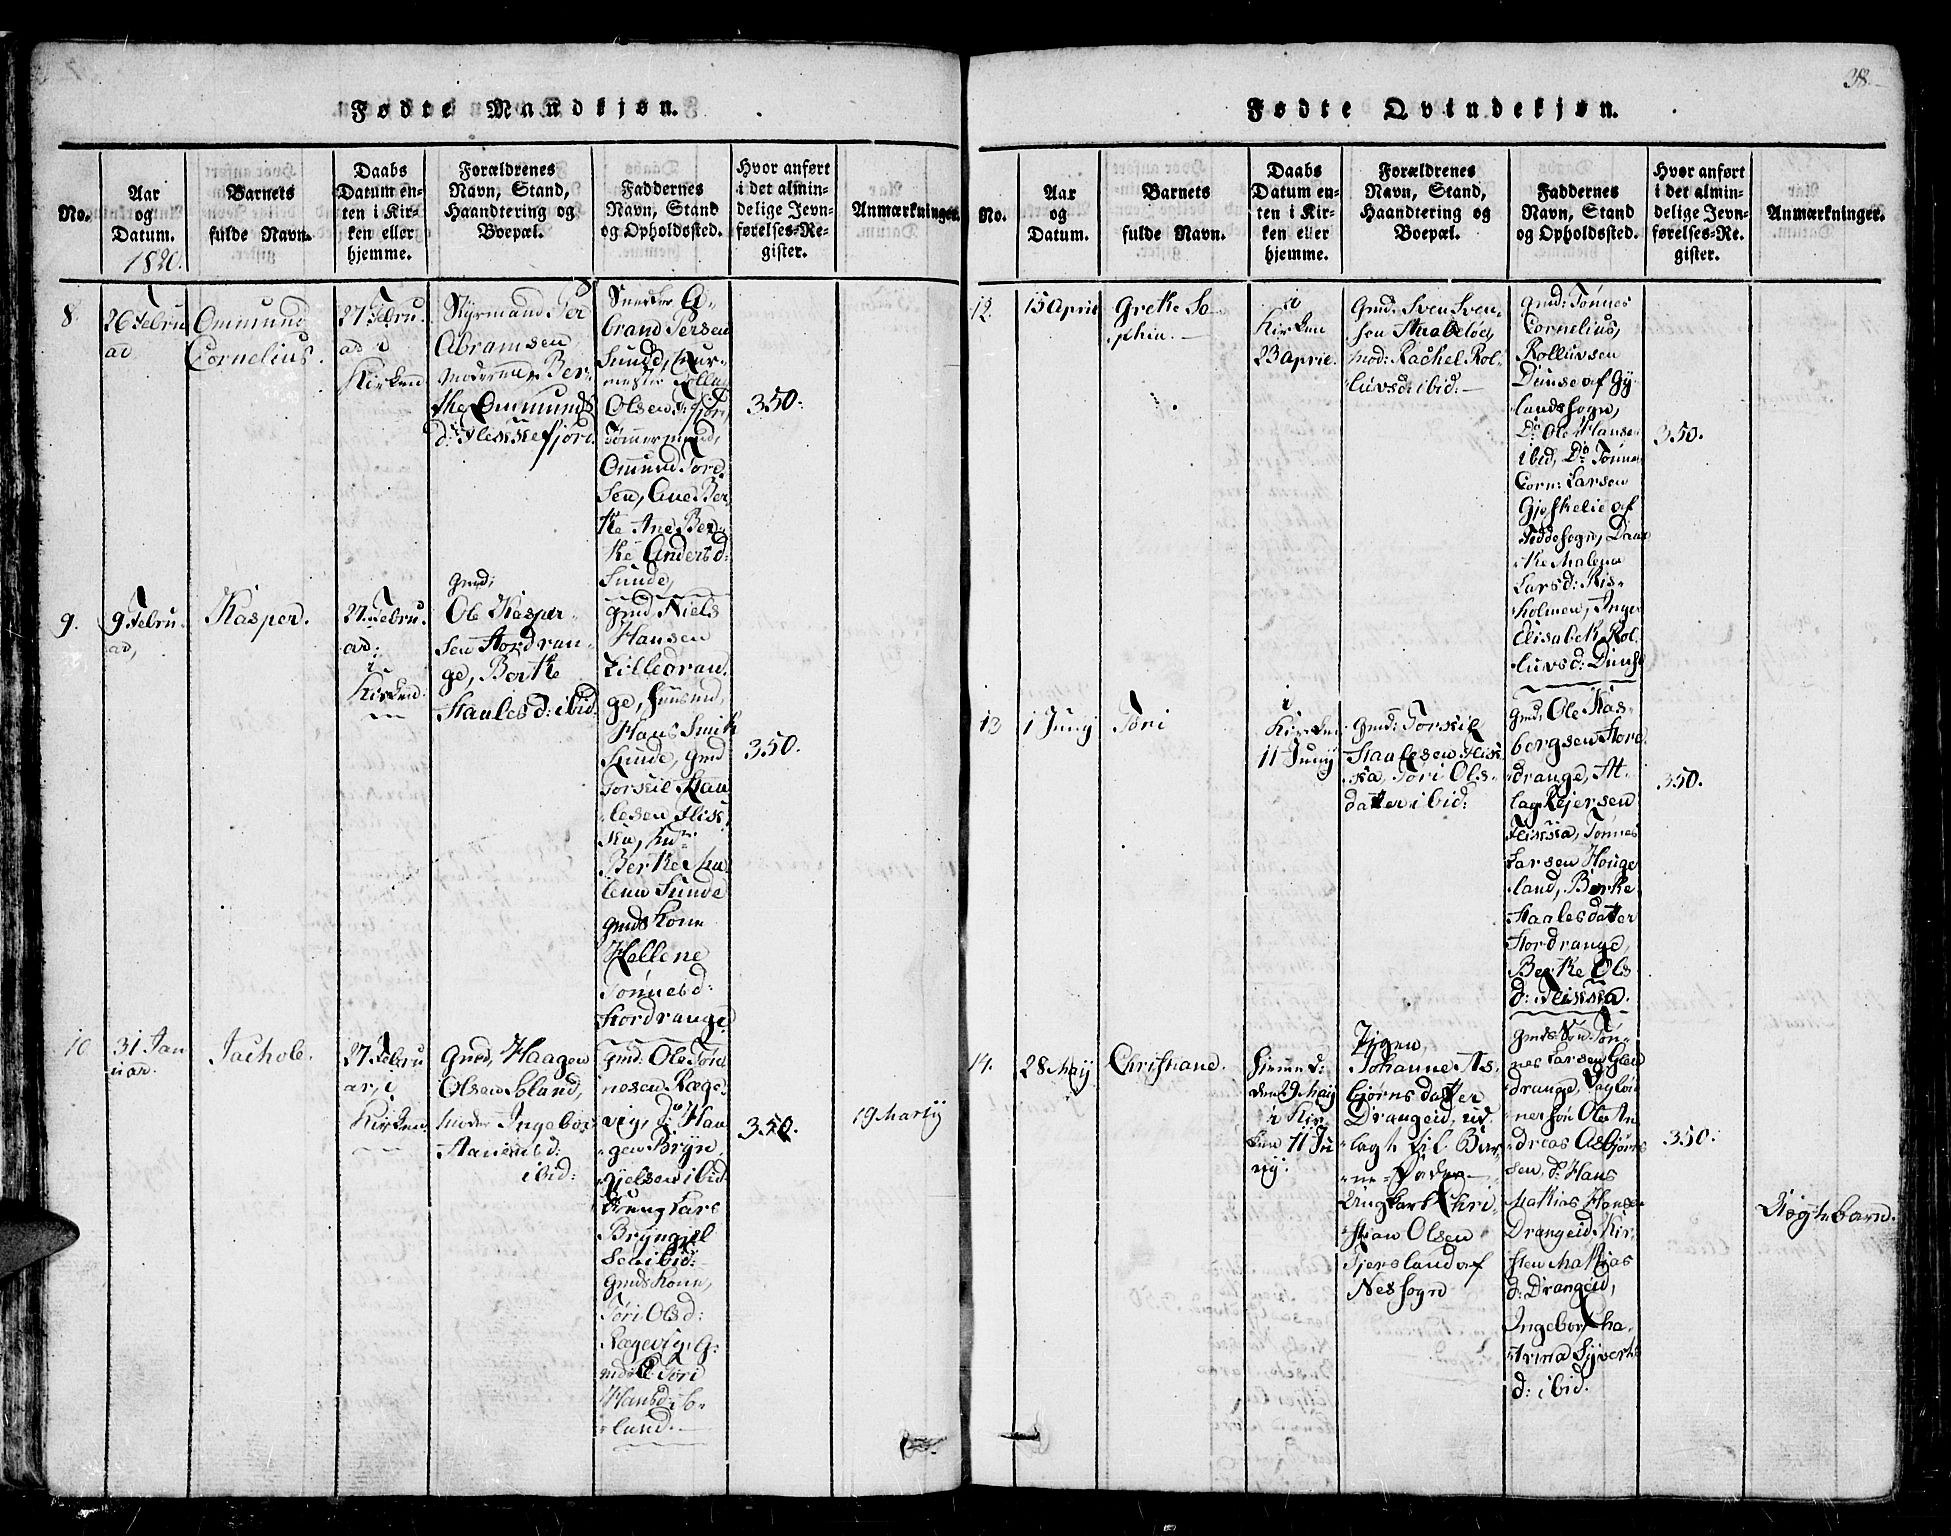 Fødte Mandkjøn.
No.
Aar
og
Datum.
1820.
Barnets
fulde Navn.
Daabs
Datum en-
ten i Kir-
ken eller
hjemme.
Forældrenes
Navn, Stand,
Haandtering og
Boepæl.
Faddernes
Navn, Stand
og Opholdssted.
Hvor anført
i det almin-
delige Jevn-
førelses-Re-
gister.
Anmærkninger.
8
26 Febru
ar
Ommund
Cornelius.
27 Febru.
ar i
Kirken
Styrmand Per
Abramsen,
moderen Ber-
the Ommunds
d: Flekkefjord.
Snecker
brand Persen
Sunde,
Olsen
Tømmermand,
Omund Tore
sen, Ane Ber
the Ane Ber-
the Anders d:
Sunde,
350.
9.
9 Febru.
ar,
Kasper.
27 Febru.
ar:
i
Kirken.
gmd:
Ole Kasper-
sen Stordran-
ge, Berthe
Staalesd: ibid:
gmd, Niels
Hansen
Lilledran
ge,
Hans Smith
Sunde, gmd
Torkil Staa
lesen Flik
ka,
Berthe Ma
lena Sunde
gmds Kone
Hellene
Tønnesd:
Stordrange
350.
10
31 Jan
uar.
27 Febru
ar, i
Kirken.
Gmd, Haagen
Olsen Soland,
moder Ingebor
ibid:
gmd. Ole Tøn
nesen Ræge-
vig, do Haa
gen Bryn
gjelsen ibid
Lars
Bryngel
sen ibid:
gmds Kone,
Tøri Olsd:
Rægevig, G:
Tøri
Hansd: So-
land.
350.
19 Martij
38
Fødte Qvindekjøn.
No.
Aar
og
Datum.
Barnets
fulde Navn.
Daabs
Datum en-
ten i Kir-
ken eller
hjemme.
Forældrenes
Navn, Stand,
Haandtering og
Boepæl.
Faddernes
Navn, Stand
og Opholdssted.
Hvor anført
i det almin-
delige Jevn-
førelses-Re-
gister.
Anmærkninger.
12.
15 April
Grethe So-
phia.
i
Kirken
23 April.
Gmd: Sven Sven-
sen Staaleløe,
mod: Rachel Rol-
luvsd: ibid:
gmd: Tønnes
Cornelius,
Rolluvsen
Dunse af Gy-
lands Sogn,
Do Ole Hansen
ibid, Do Tønnes
Corn: Larsen
af
Feddesogn,
Malena
Larsd: Ris-
holmen, Inger
Elisabeth Rol
luvsd: Dunse
350.
13
1 Juny
Tøri
i
Kirken
11 Juny
gmd: Torkil
Staalesen Flik
ka, Tøri Ols-
datter ibid:
gmd, Ole Kas-
bergsen Stor
drange, At-
lag Rejersen
Flikka, Tønnes
Larsen Houge
land, Berthe
Staalesdatter
Stordrange,
Berthe Ols
d: Flikka.
350.
14.
28 Maij
Christiane.
hjemme d:
den 29 Maij
i Kir-
ken 11 Ju
nij.
Pigen
Johanne As-
bjørnsdatter
Drangeid, ud
lagt til Bar
ne-Fader
Ungkarl Chri
stian Olsen
Fjersland af
Nes Sogn
gmds Søn Tøn-
nes Larsen
drange,
Ole An
dreas Asbjørn
sen, do Hans
Mathias Hansen
Drangeid, Kir-
sten Mathias
d: Drangeid,
Ingebor Cha-
trina Syverts
d: ibid.
350.
Uægtebarn.